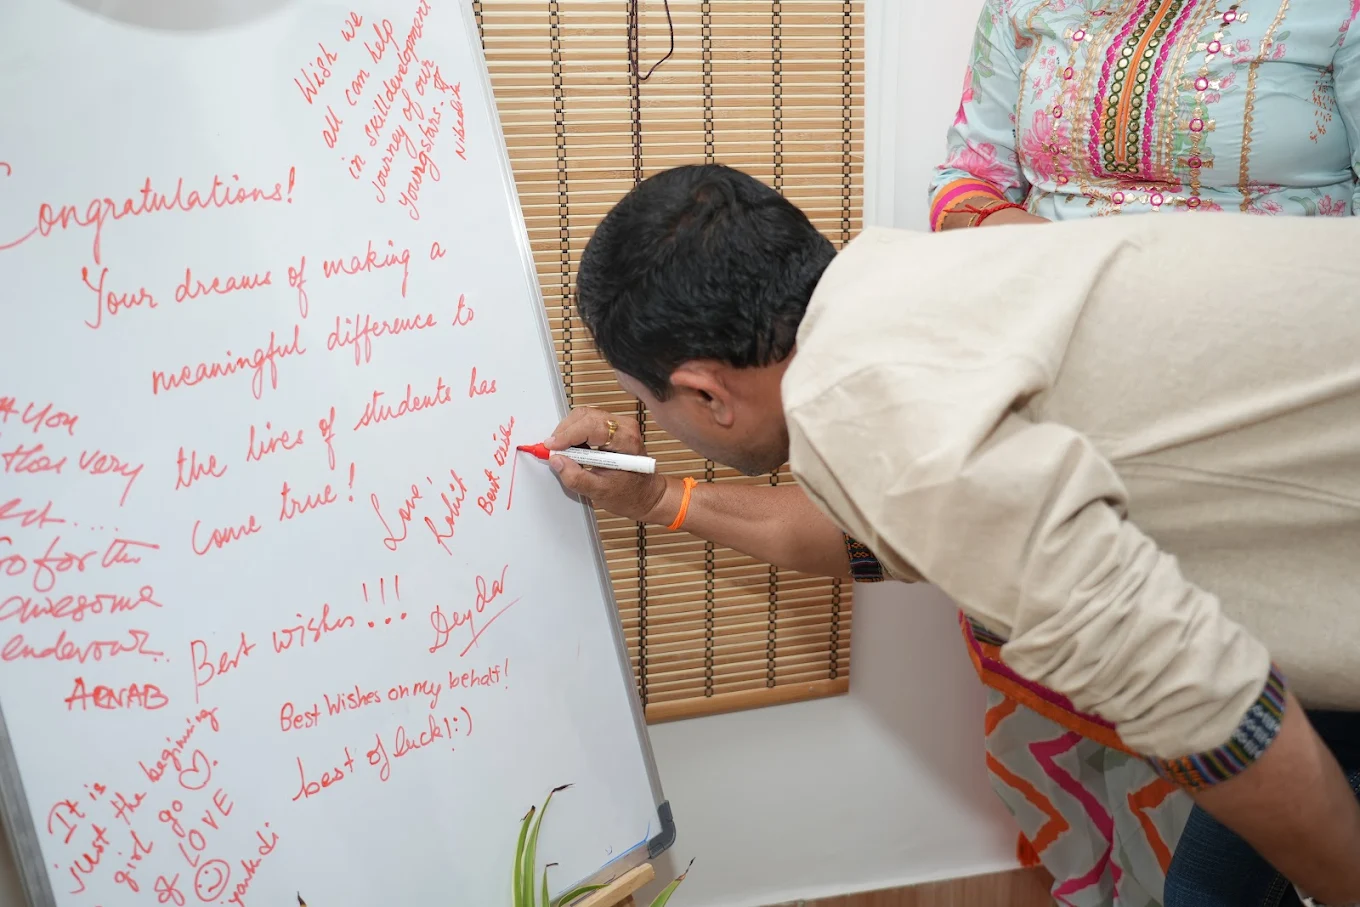 Wish we
all can help
in skilldevelopment
journey of our
youngstars.
Congratulations!
Your dreams of making a
meaningful difference to
the lives of students has
come true!
Love,
Best wishes
you
this very
Go for this
awesome
endevour..
ARNAB
Best wishes!!!
Dey da
Best Wishes on my behalf!
best of luck!:)
It is
just the beginning
girl go
LOVE